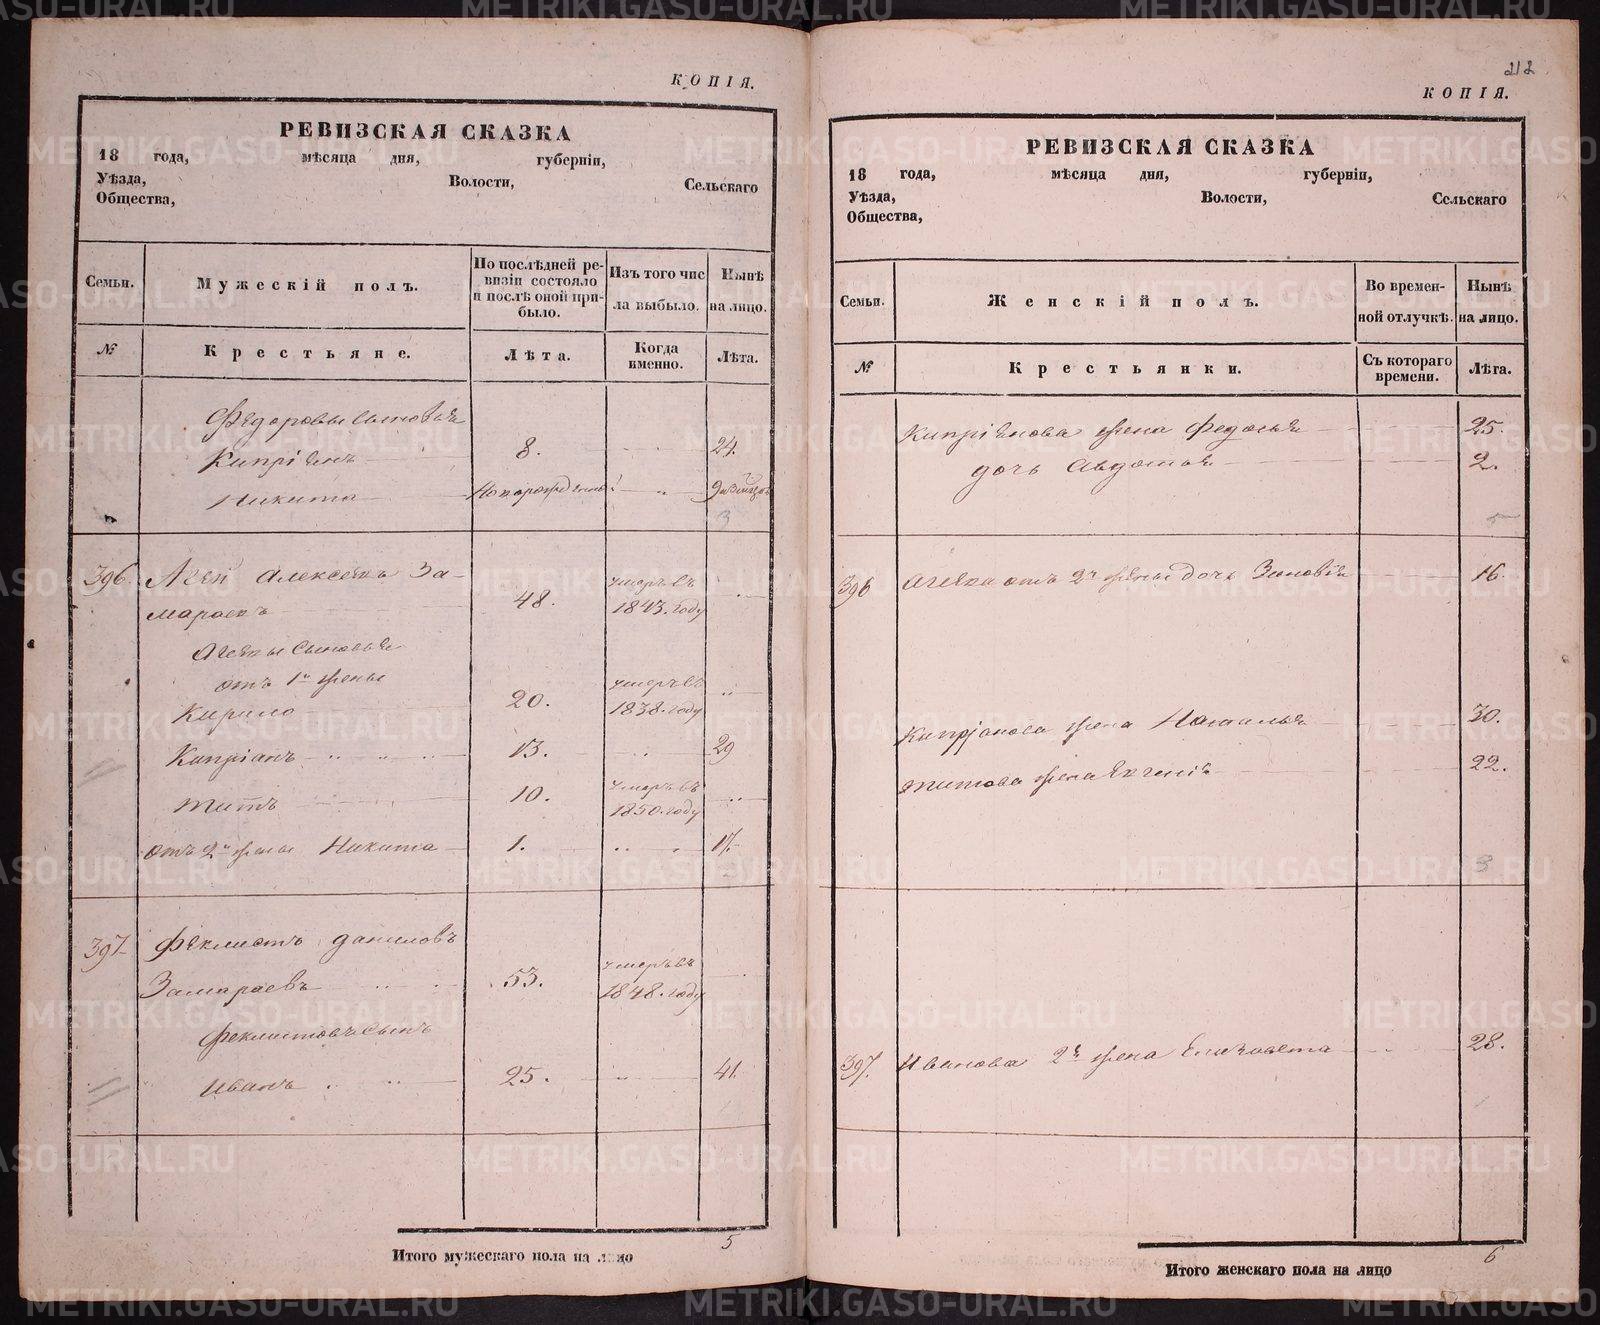 КОПІЯ.
РЕВИЗСКАЯ СКАЗКА
18 года, мѣсяца дня, губерніи,
Уѣзда, Волости, Сельскаго
Общества,
Семьи. Мужескій полъ. По послѣдней ревизіи состояло и послѣ оной прибыло. Изъ того числа выбыло. Нынѣ на лицо.
№ Крестьяне. Лѣта. Когда именно. Лѣта.
Федоровы сыновья
Кипріянъ 8. 24.
Никита
3
396 Агей Алексѣевъ За-
мараевъ 48. умеръ въ 1843. году
Агеевы сыновья
отъ 1й жены
Кирило 20. умеръ въ 1838. году
Кипріанъ 13. 29
Титъ 10. умеръ въ 1850. году
отъ 2й жены Никита 1. 17.
397 Феклистъ Даниловъ
Замараевъ 53. умеръ въ 1848. году
Феклистовъ сынъ
Иванъ 25. 41.
Итого мужескаго пола на лицо 5
212
КОПІЯ.
РЕВИЗСКАЯ СКАЗКА
18 года, мѣсяца дня, губерніи,
Уѣзда, Волости, Сельскаго
Общества,
Семьи. Женскій полъ. Во временной отлучкѣ. Нынѣ на лицо.
№ Крестьянки. Съ котораго времени. Лѣта.
Кипріянова жена Федосья 25.
дочь Авдотья 2.
396 Агеева отъ 2й жены дочь Зиновія 16.
Кипріанова жена Наталья 30.
Титова жена Евгенія 22.
3
397. Иванова 2я жена Елизавета 28.
Итого женскаго пола на лицо 6
METRIKI.GASO-URAL.RU